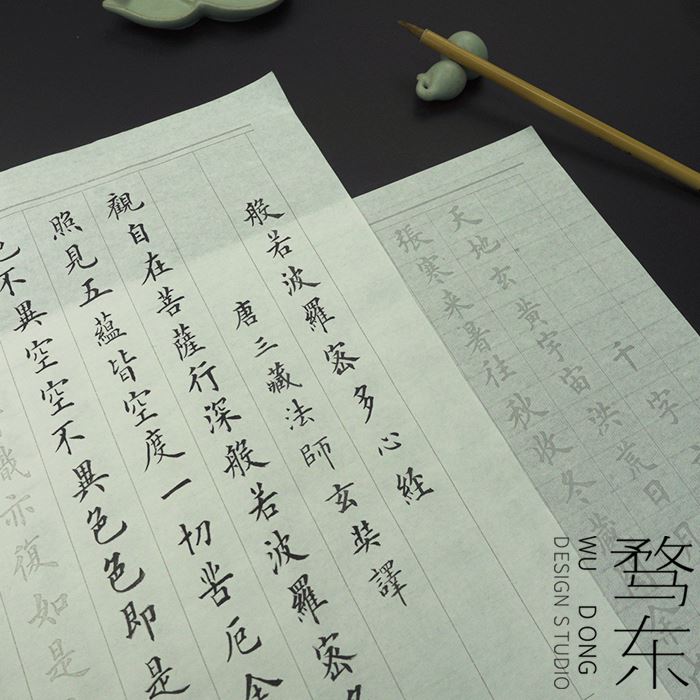 千字
天地玄黃宇宙洪荒日
張寒来暑往秋收冬
般若波羅密多心經
唐三藏法師玄奘譯
觀自在菩薩行深般若波羅密多
照見五蘊皆空度一切苦厄舍
色不異空空不異色色即是
識亦復如是
鹜东
WU DONG
DESIGN STUDIO